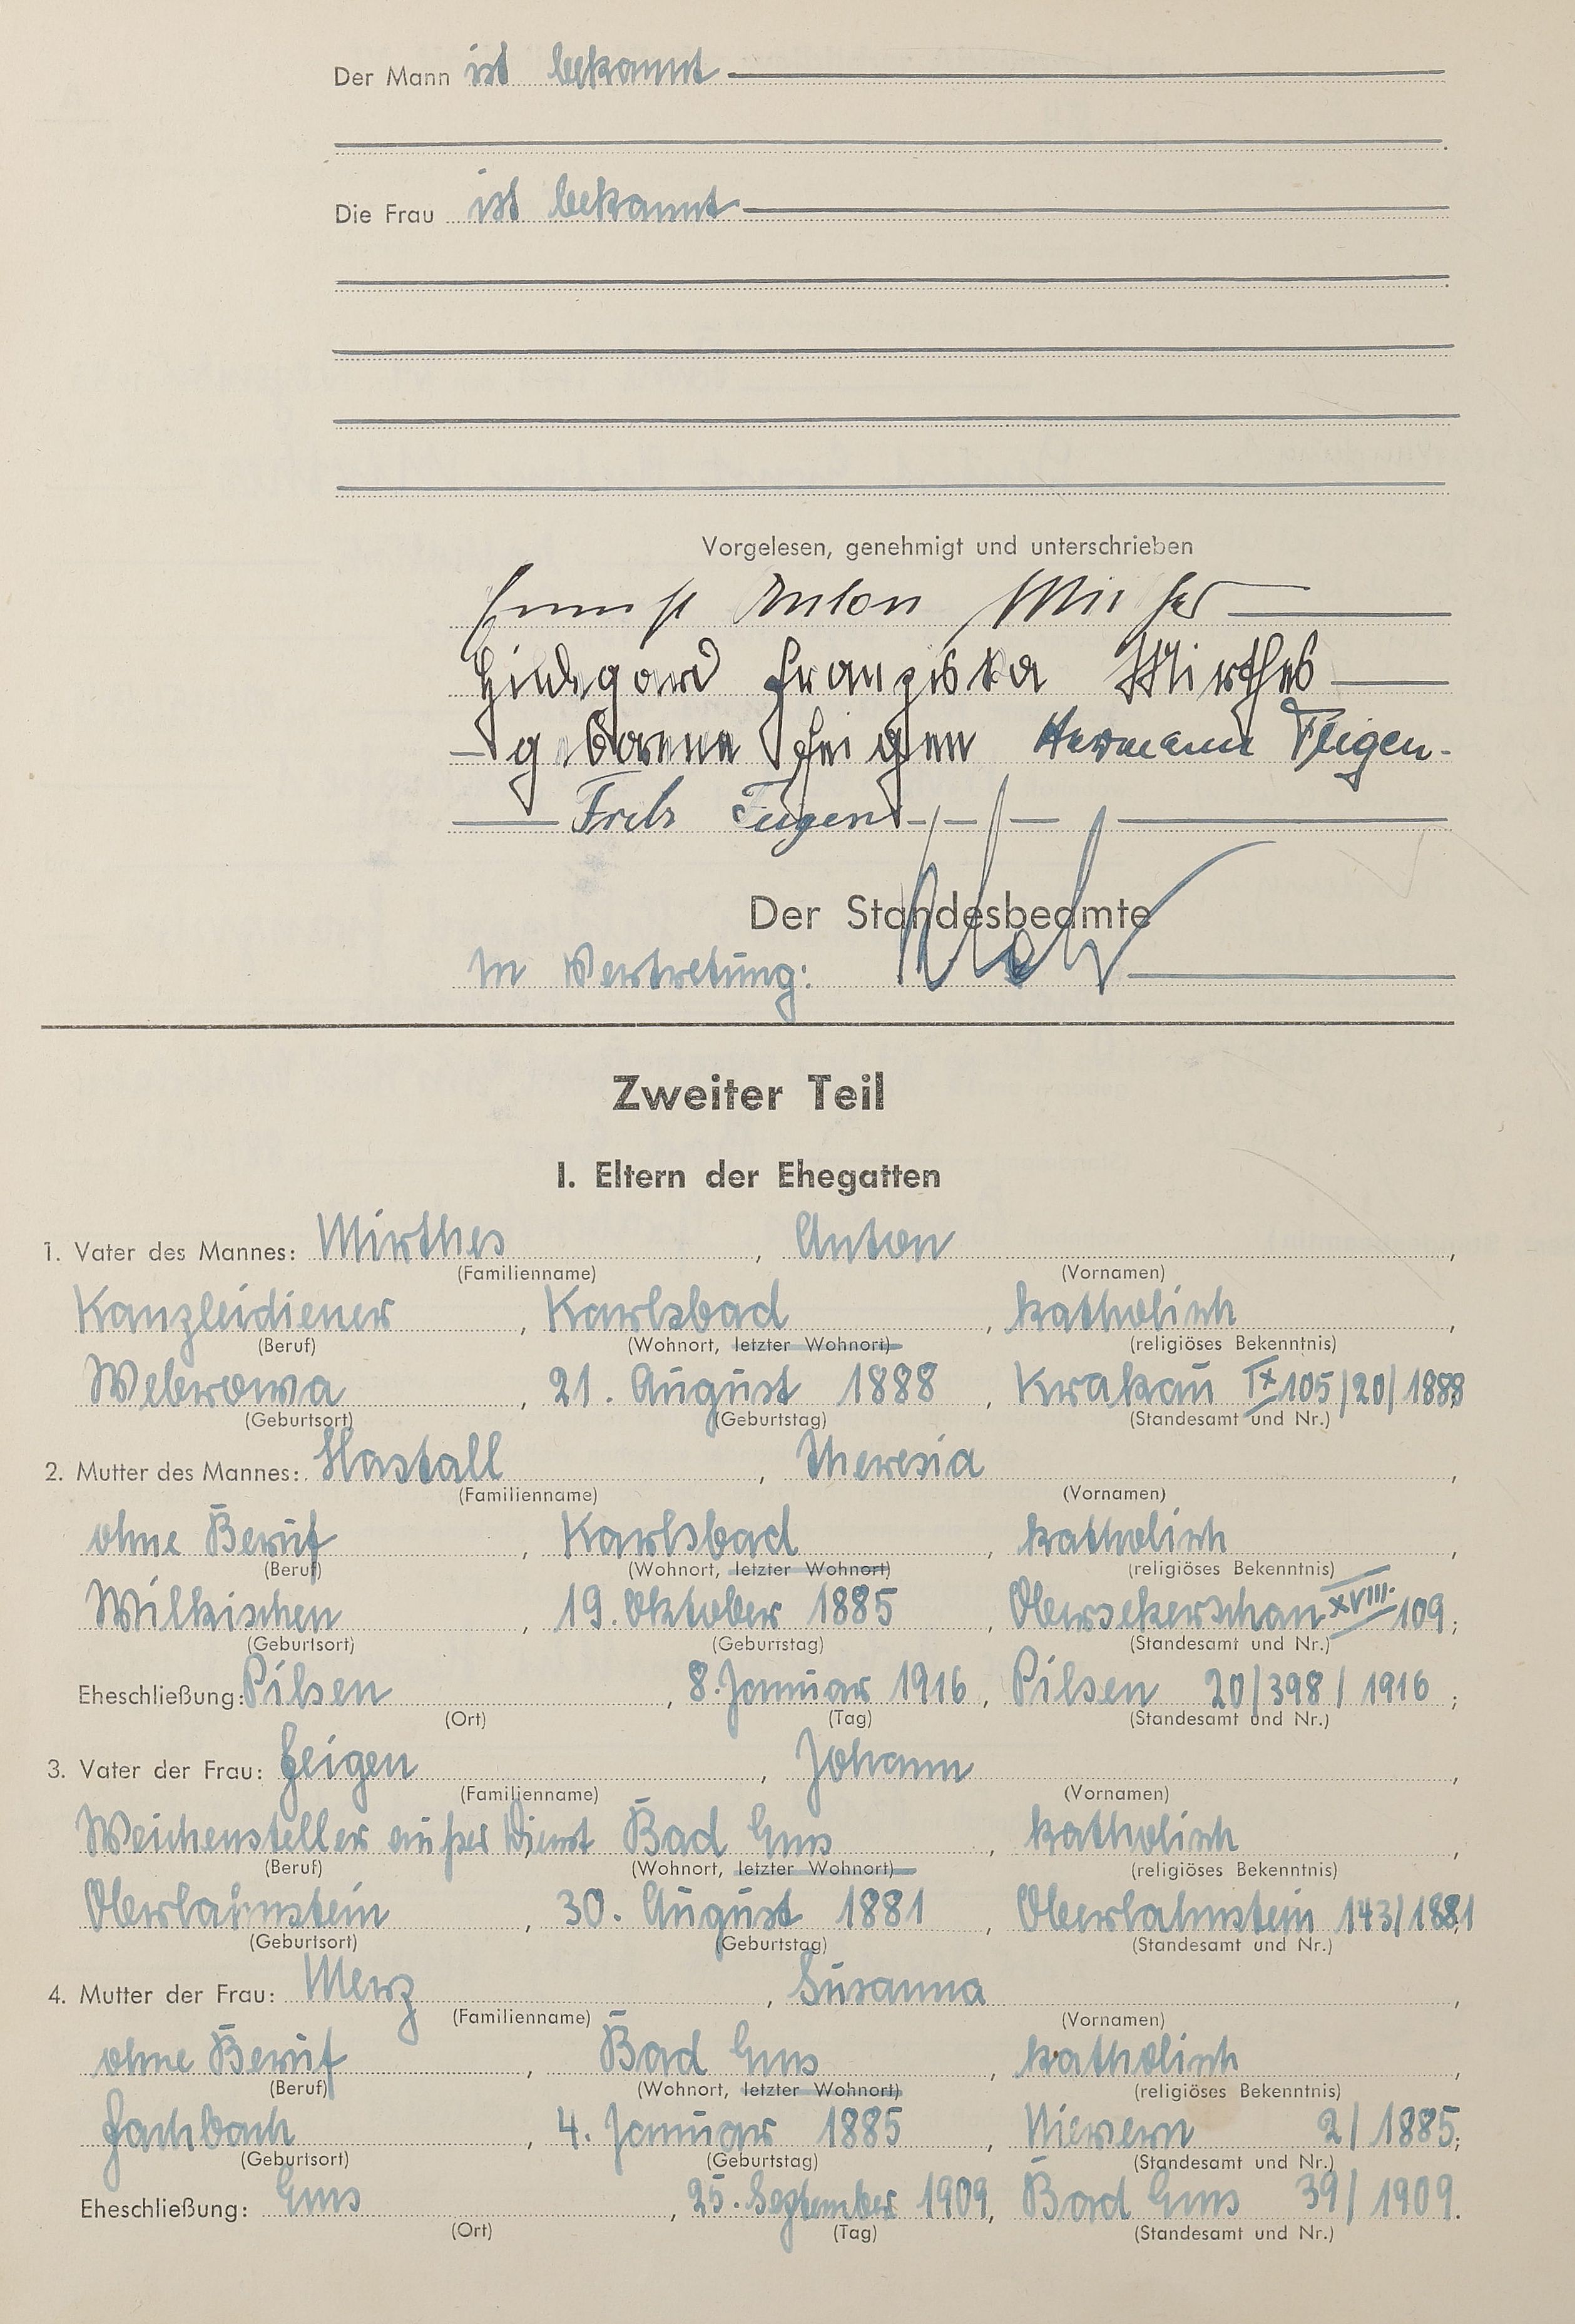 Der Mann ist bekannt
Die Frau ist bekannt
Vorgelesen, genehmigt und unterschrieben
Anton
Hildegard Franziska Mirthes
geborene Feigen Hermann Feigen
Fritz Feigen
Der Standesbeamte
In Vertretung:
Zweiter Teil
I. Eltern der Ehegatten
1. Vater des Mannes: Mirthes, Anton,
(Familienname) (Vornamen)
Kanzleidiener, Karlsbad, katholisch,
(Beruf) (Wohnort, letzter Wohnort) (religiöses Bekenntnis)
21. August 1888, Krakau IX 105/20/1888
(Geburtsort) (Geburtstag) (Standesamt und Nr.)
2. Mutter des Mannes: Hastall, Theresia,
(Familienname) (Vornamen)
ohne Beruf, Karlsbad, katholisch,
(Beruf) (Wohnort, letzter Wohnort) (religiöses Bekenntnis)
Wilkischen, 19. Oktober 1885, Obersekerschan XVIII. 109;
(Geburtsort) (Geburtstag) (Standesamt und Nr.)
Eheschließung: Pilsen, 8. Januar 1916, Pilsen 20/398/1916;
(Ort) (Tag) (Standesamt und Nr.)
3. Vater der Frau: Feigen, Johann,
(Familienname) (Vornamen)
Weichensteller außer Dienst Bad Ems, katholisch,
(Beruf) (Wohnort, letzter Wohnort) (religiöses Bekenntnis)
Oberlahnstein, 30. August 1881, Oberlahnstein 143/1881
(Geburtsort) (Geburtstag) (Standesamt und Nr.)
4. Mutter der Frau: Merz, Susanna,
(Familienname) (Vornamen)
ohne Beruf, Bad Ems, katholisch,
(Beruf) (Wohnort, letzter Wohnort) (religiöses Bekenntnis)
Fachbach, 4. Januar 1885, Nievern 2/1885;
(Geburtsort) (Geburtstag) (Standesamt und Nr.)
Eheschließung: Ems, 25. September 1909, Bad Ems 39/1909.
(Ort) (Tag) (Standesamt und Nr.)